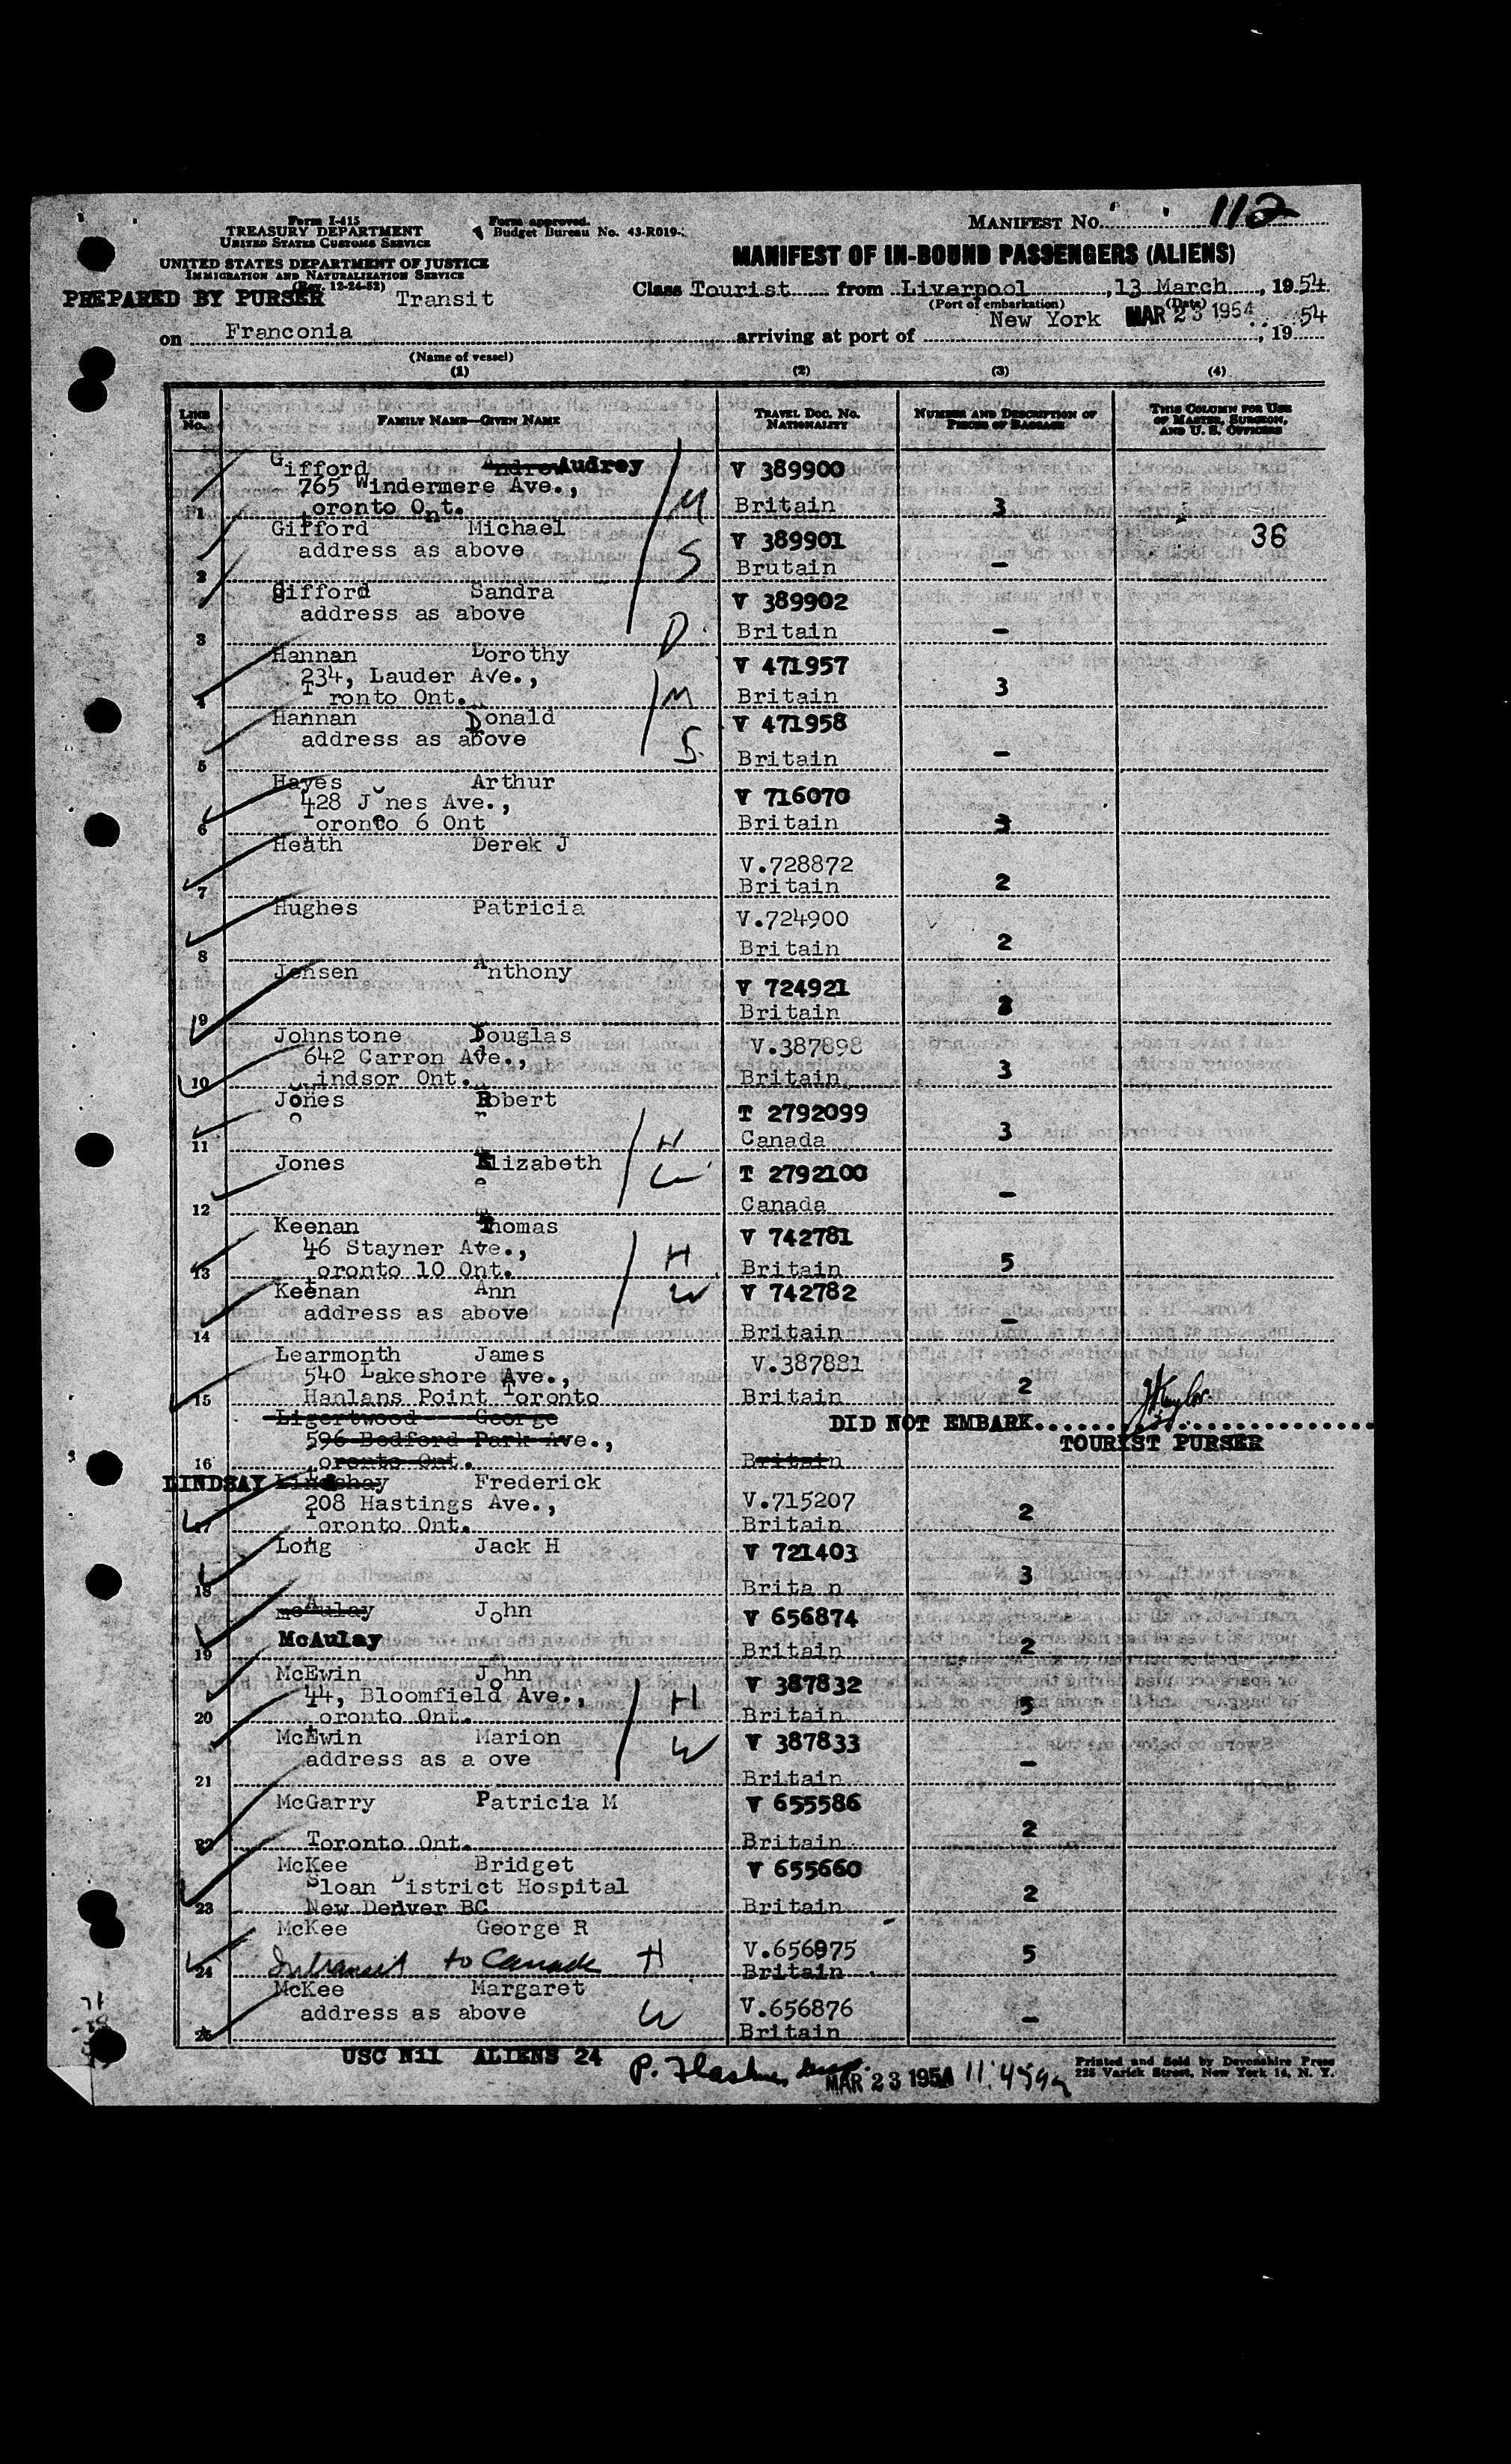 Form I-415
TREASURY DEPARTMENT
UNITED STATES CUSTOMS SERVICE
Form approved.
Budget Bureau No. 43-R019-
MANIFEST No. 112
UNITED STATES DEPARTMENT OF JUSTICE
IMMIGRATION AND NATURALIZATION SERVICE
(Rev. 12-24-52)
MANIFEST OF IN-BOUND PASSENGERS (ALIENS)
PREPARED BY PURSER Transit
Class Tourist from Liverpool, 13 March, 1954.
(Port of embarkation) (Date)
on Franconia arriving at port of New York MAR 23 1954, 1954
(Name of vessel)
(1) (2) (3) (4)
LINE No. FAMILY NAME—GIVEN NAME TRAVEL DOC. NO. NATIONALITY NUMBER AND DESCRIPTION OF PIECES OF BAGGAGE THIS COLUMN FOR USE OF MASTER, SURGEON, AND U. S. OFFICERS
Gifford Andrew Audrey V 389900
765 Windermere Ave.,
1 toronto Ont. M Britain 3
Gifford Michael V 389901 36
address as above S
2 Brutain -
Gifford Sandra V 389902
address as above
3 D. Britain -
Hannan Dorothy V 471957
234, Lauder Ave.,
4 T ronto Ont. M Britain 3
Hannan Donald V 471958
address as above
5 S. Britain -
Hayes Arthur V 716070
428 Jones Ave.,
6 Toronto 6 Ont Britain 3
Heath Derek J V.728872
7 Britain 2
Hughes Patricia V.724900
8 Britain 2
Jensen Anthony V 724921
9 Britain
Johnstone Douglas V.387898
642 Carron Ave.,
10 indsor Ont. Britain 3
Jones Robert T 2792099
11 H Canada 3
Jones Elizabeth T 2792100
12 Canada -
Keenan Thomas V 742781
46 Stayner Ave.,
13 toronto 10 Ont. H Britain 5
Keenan Ann W V 742782
address as above
14 Britain -
Learmonth James V.387881
540 Lakeshore Ave.,
15 Hanlans Point Toronto Britain 2
Ligertwood George DID NOT EMBARK
596 Bedford Park Ave., TOURIST PURSER
16 toronto Ont. Britain
LINDSAY Lindshay Frederick V.715207
208 Hastings Ave.,
17 Toronto Ont. Britain 2
Long Jack H V 721403
18 Brita n 3
mcAulay John V 656874
19 McAulay Britain 2
McEwin John V 387832
44, Bloomfield Ave.,
20 toronto Ont. H Britain 5
McEwin Marion V 387833
address as a ove W
21 Britain -
McGarry Patricia M V 655586
22 Toronto Ont. Britain 2
McKee Bridget V 655660
Sloan District Hospital
23 New Denver BC Britain 2
McKee George R V.656975
24 Intransit to Canada H Britain 5
McKee Margaret V.656876
address as above W
25 Britain -
USC Nil ALIENS 24
MAR 23 1954 11:45
Printed and Sold by Devonshire Press
225 Varick Street, New York 14, N. Y.